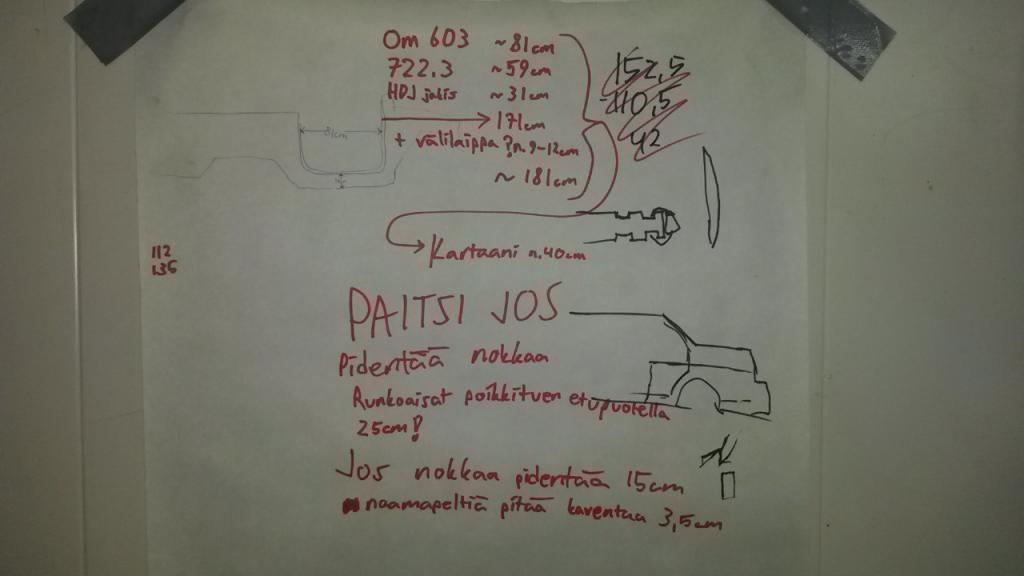 Om 603 ~81cm
722.3 ~59cm
HDJ jakis ~31cm
171cm
+ välilaippa ? n.9-12cm
~ 181cm
152,5
-110,5
42
81cm
Kartaani n.40cm
112
135
PAITSI JOS
Pidentää nokkaa
Runkoaisat poikkituen etupuolella
25cm!
Jos nokkaa pidentää 15cm
naamapeltiä pitää kaventaa 3,5cm